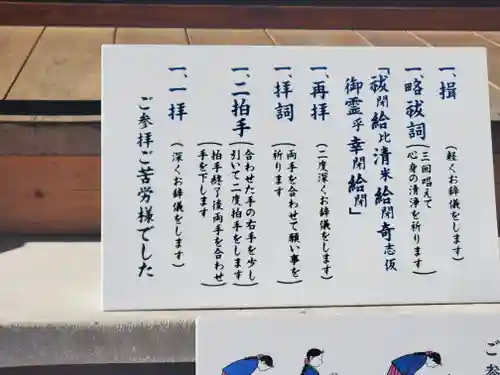 一、揖(軽くお辞儀をします)
一、略祓詞(三回唱えて心身の清浄を祈ります)
「祓閇給比清米給閇奇志仮
御霊乎幸閇給閇」
一、再拝(二度深くお辞儀をします)
一、拝詞(両手を合わせて願い事を祈ります)
一、二拍手(合わせた手の右手を少し引いて二度拍手をします)
(拍手終了後両手を合わせ手を下します)
一、一拝(深くお辞儀をします)
ご参拝ご苦労様でした
ご参